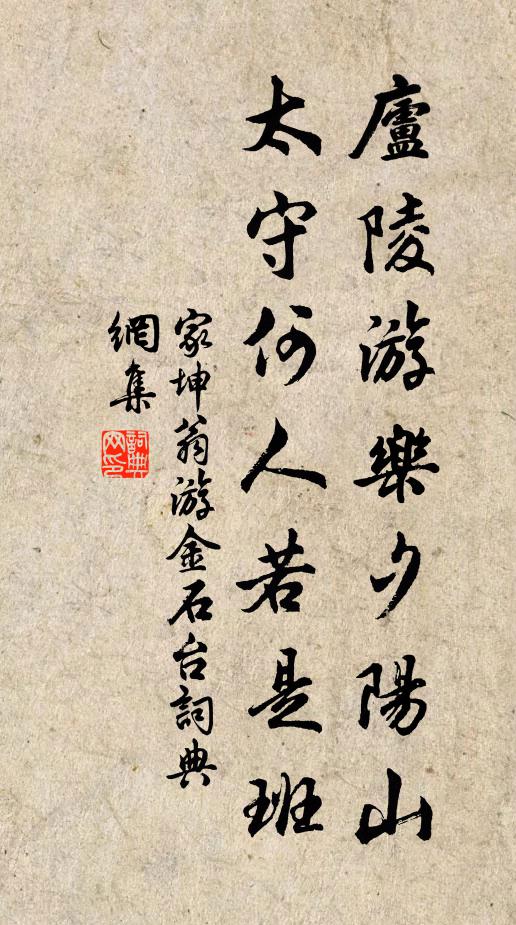 廬陵游樂夕陽山
太守何人若是班
家坤翁游金石台詞典
網集
詞典網印